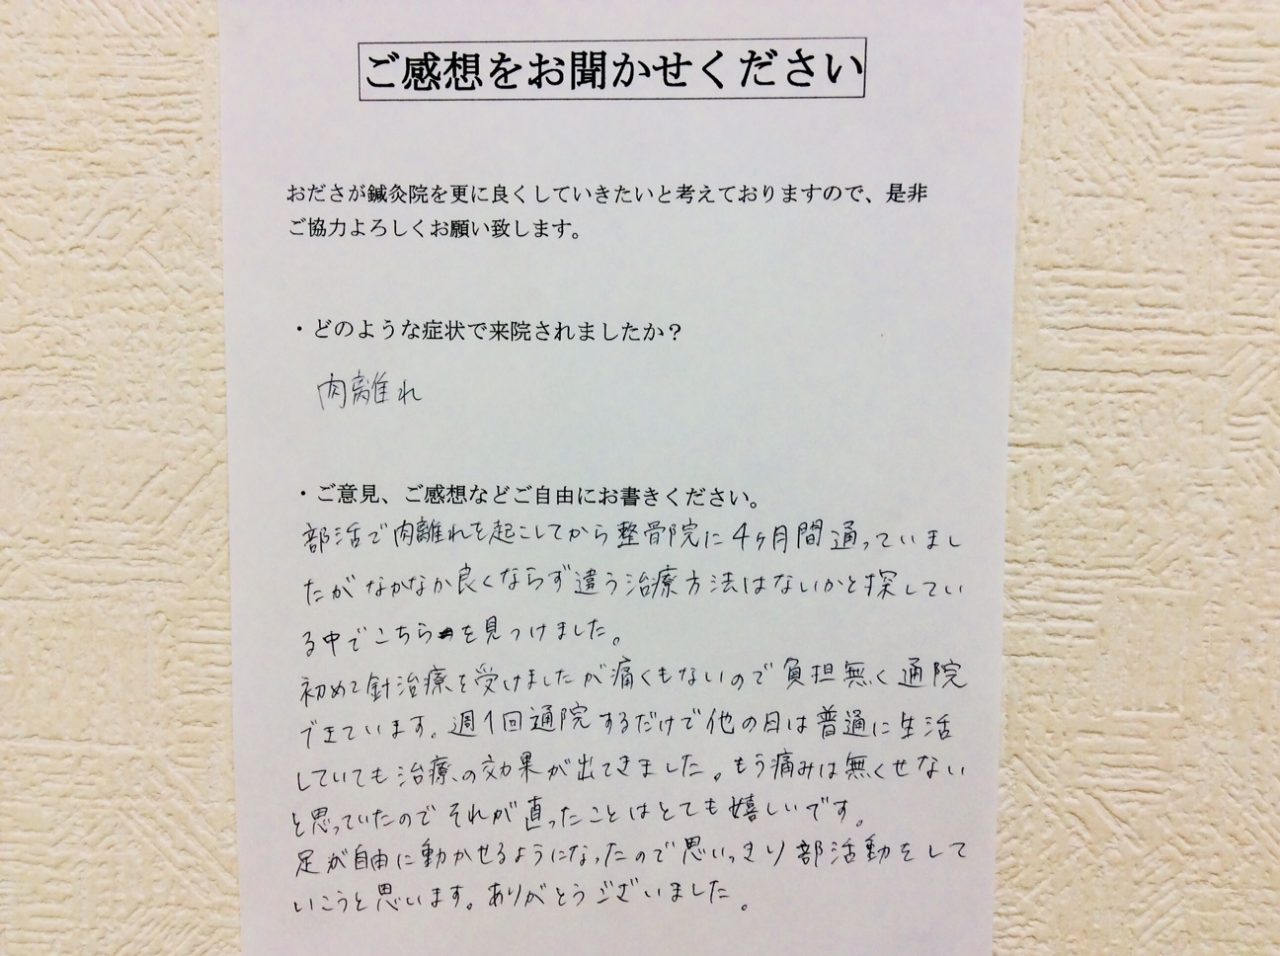 ご感想をお聞かせください
おださが鍼灸院を更に良くしていきたいと考えておりますので、是非
ご協力よろしくお願い致します。
・どのような症状で来院されましたか？
肉離れ
・ご意見、ご感想などご自由にお書きください。
部活で肉離れを起こしてから整骨院に4ヶ月間通っていまし
たがなかなか良くならず違う治療方法はないかと探してい
る中でこちらを見つけました。
初めて針治療を受けましたが痛くもないので負担無く通院
できています。週1回通院するだけで他の日は普通に生活
していても治療の効果が出てきました。もう痛みは無くせない
と思っていたのでそれが直ったことはとても嬉しいです。
足が自由に動かせるようになったので思いっきり部活動をして
いこうと思います。ありがとうございました。